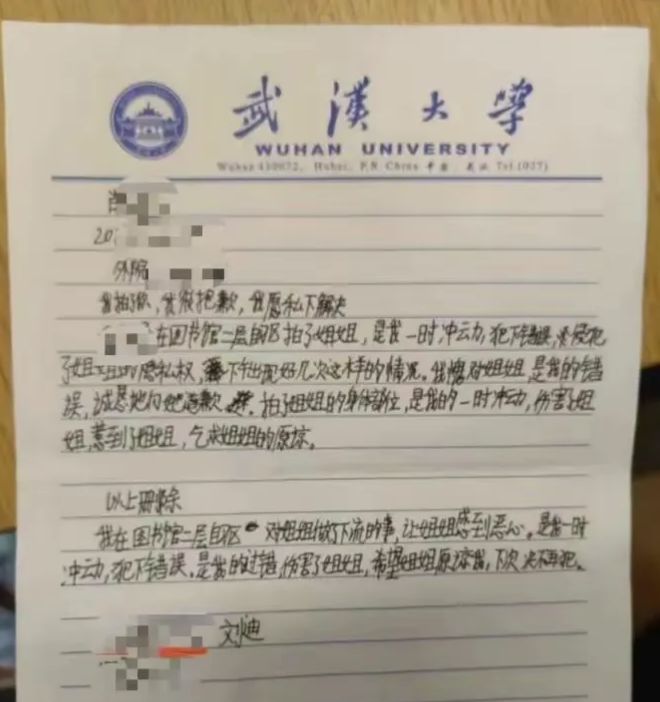 武漢大學
WUHAN UNIVERSITY
Wuhan 430072, Hubei, P.R.China 中国·武汉 Tel.(027)
肖
20
外院
我拍了你,我很抱歉,我愿私下解决
在图书馆二层自习区拍了姐姐,是我一时冲动,犯下错误,侵犯
了姐姐的隐私权,下午出现好几次这样的情况。我愧对姐姐,是我的错
误,诚恳地向她道歉。拍了姐姐的身体部位,是我的一时冲动,伤害了姐
姐,惹到了姐姐,乞求姐姐的原谅。
以上删除
我在图书馆二层自习区对姐姐做了下流的事,让姐姐感到恶心。是我一时
冲动,犯下错误。是我的过错,伤害了姐姐,希望姐姐原谅我,下次决不再犯。